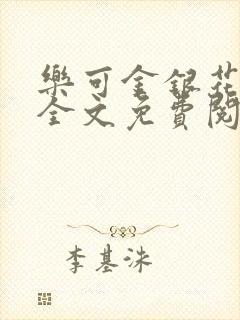 樂可金銀花
全文免費閱
李基洙